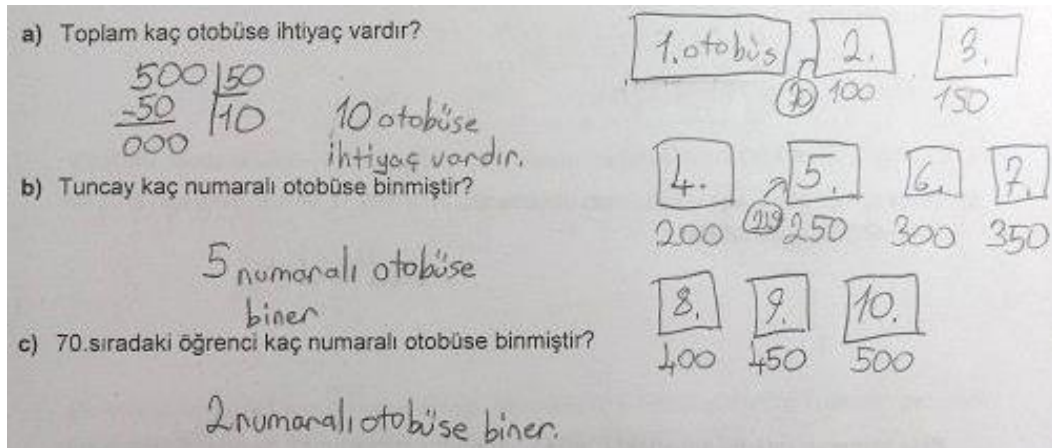 a) Toplam kaç otobüse ihtiyaç vardır?
500 50
-50 10
000
10 otobüse
ihtiyaç vardır.
b) Tuncay kaç numaralı otobüse binmiştir?
5 numaralı otobüse
biner
c) 70.sıradaki öğrenci kaç numaralı otobüse binmiştir?
2 numaralı otobüse biner.
1. otobüs 2. 3.
70 100 150
4. 5. 6. 7.
200 219 250 300 350
8. 9. 10.
400 450 500